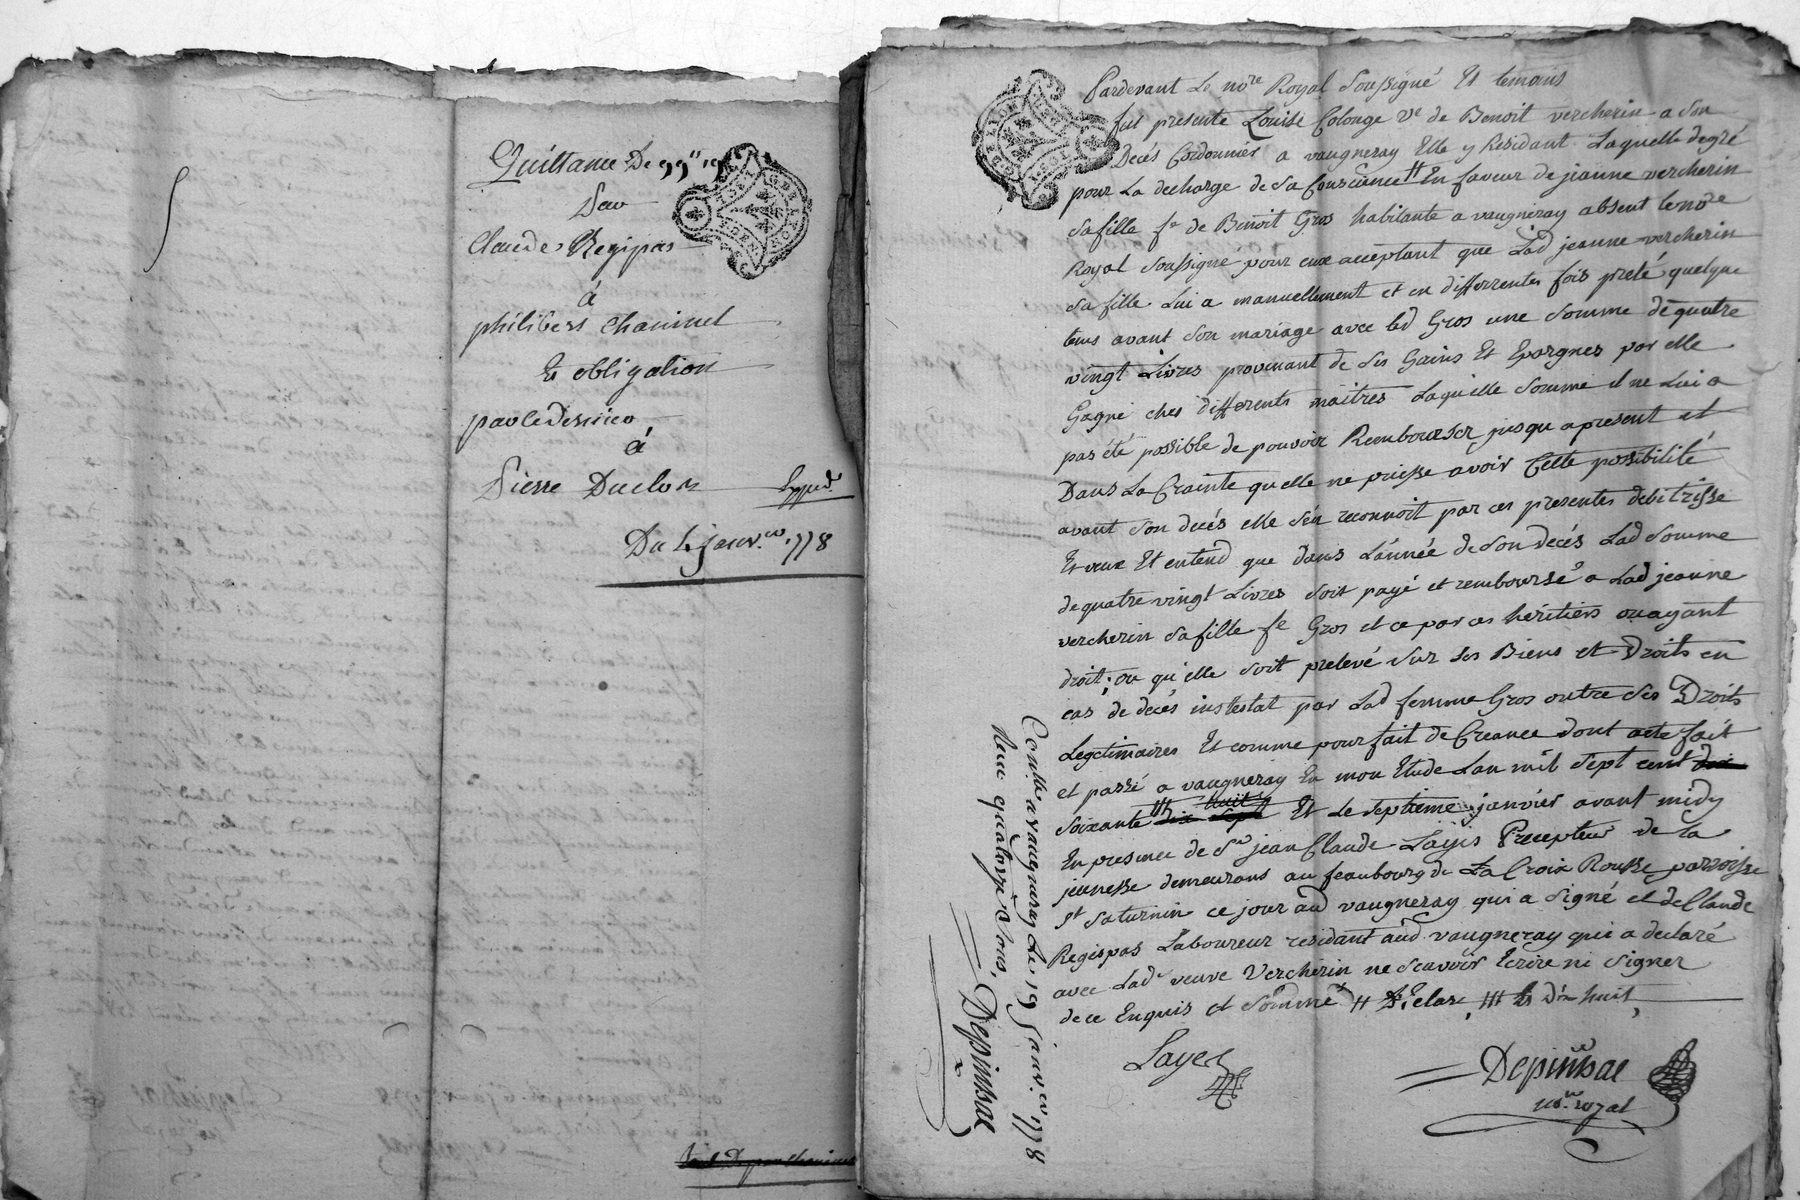 Quittance De 99ᴴ 19ˢ
Par
Claude Regipas
à
philibert Chanivet
Et obligation
par le dernier
à
Pierre Duclos
Exped.
Du 4 janv.er 1778
Pardevant Le no.re Royal Soussigné Et temoins
fut presente Louise Colonge ve de Benoit vercherin a son
Decés Cordonnier a vaugneray Elle y Residant Laquelle de gré
pour La decharge de sa Conscience # En faveur de jeanne vercherin
sa fille fe de Benoit Gros habitante a vaugneray absent le no.re
Royal soussigné pour eux acceptant que Lad jeanne vercherin
sa fille Lui a manuellement et en differrentes fois preté quelque
tems avant son mariage avec led Gros une somme de quatre
vingt Livres provenant de ses Gains Et Epargnes par elle
Gagné ches differents maitres Laquelle somme il ne Lui a
pas été possible de pouvoir Rembourser jusqu apresent et
Dans La Crainte quelle ne puisse avoir Cette possibilité
avant son decés elle s'en reconnoit par ces presentes debitrisse
Et veux Et entend que dans L'année de son decés Lad somme
de quatre vingt Livres soit payé et remboursé a Lad jeanne
vercherin sa fille fe Gros et ce par ces héritiers ou ayant
droit, ou qu'elle soit prelevé sur ses Biens et Droits en
cas de decés instestat par Lad femme Gros outre ses Droits
Legetimaires Et comme pour fait de Creance dont acte fait
et passé a vaugneray En mon Etude Lan mil sept cent dix
soixante ## dix sept huit Et Le septieme janvier avant midy
En presence de Sr jean Claude Layes Precepteur de la
jeunesse demeurans au feaubourg de La Croix Rousse paroisse
St Saturnin ce jour aud vaugneray qui a signé et de Claude
Regispas Laboureur residant aud vaugneray qui a declaré
avec Lad veuve Vercherin ne scavoir Ecrire ni signer
de ce Enquis et sommé # Declare ### Dix huit
Layes
Depinssac
no.re royal
Con.lle a vaugneray Le 19 janv.er 1778
Reçu quatorze sols, Depinssac